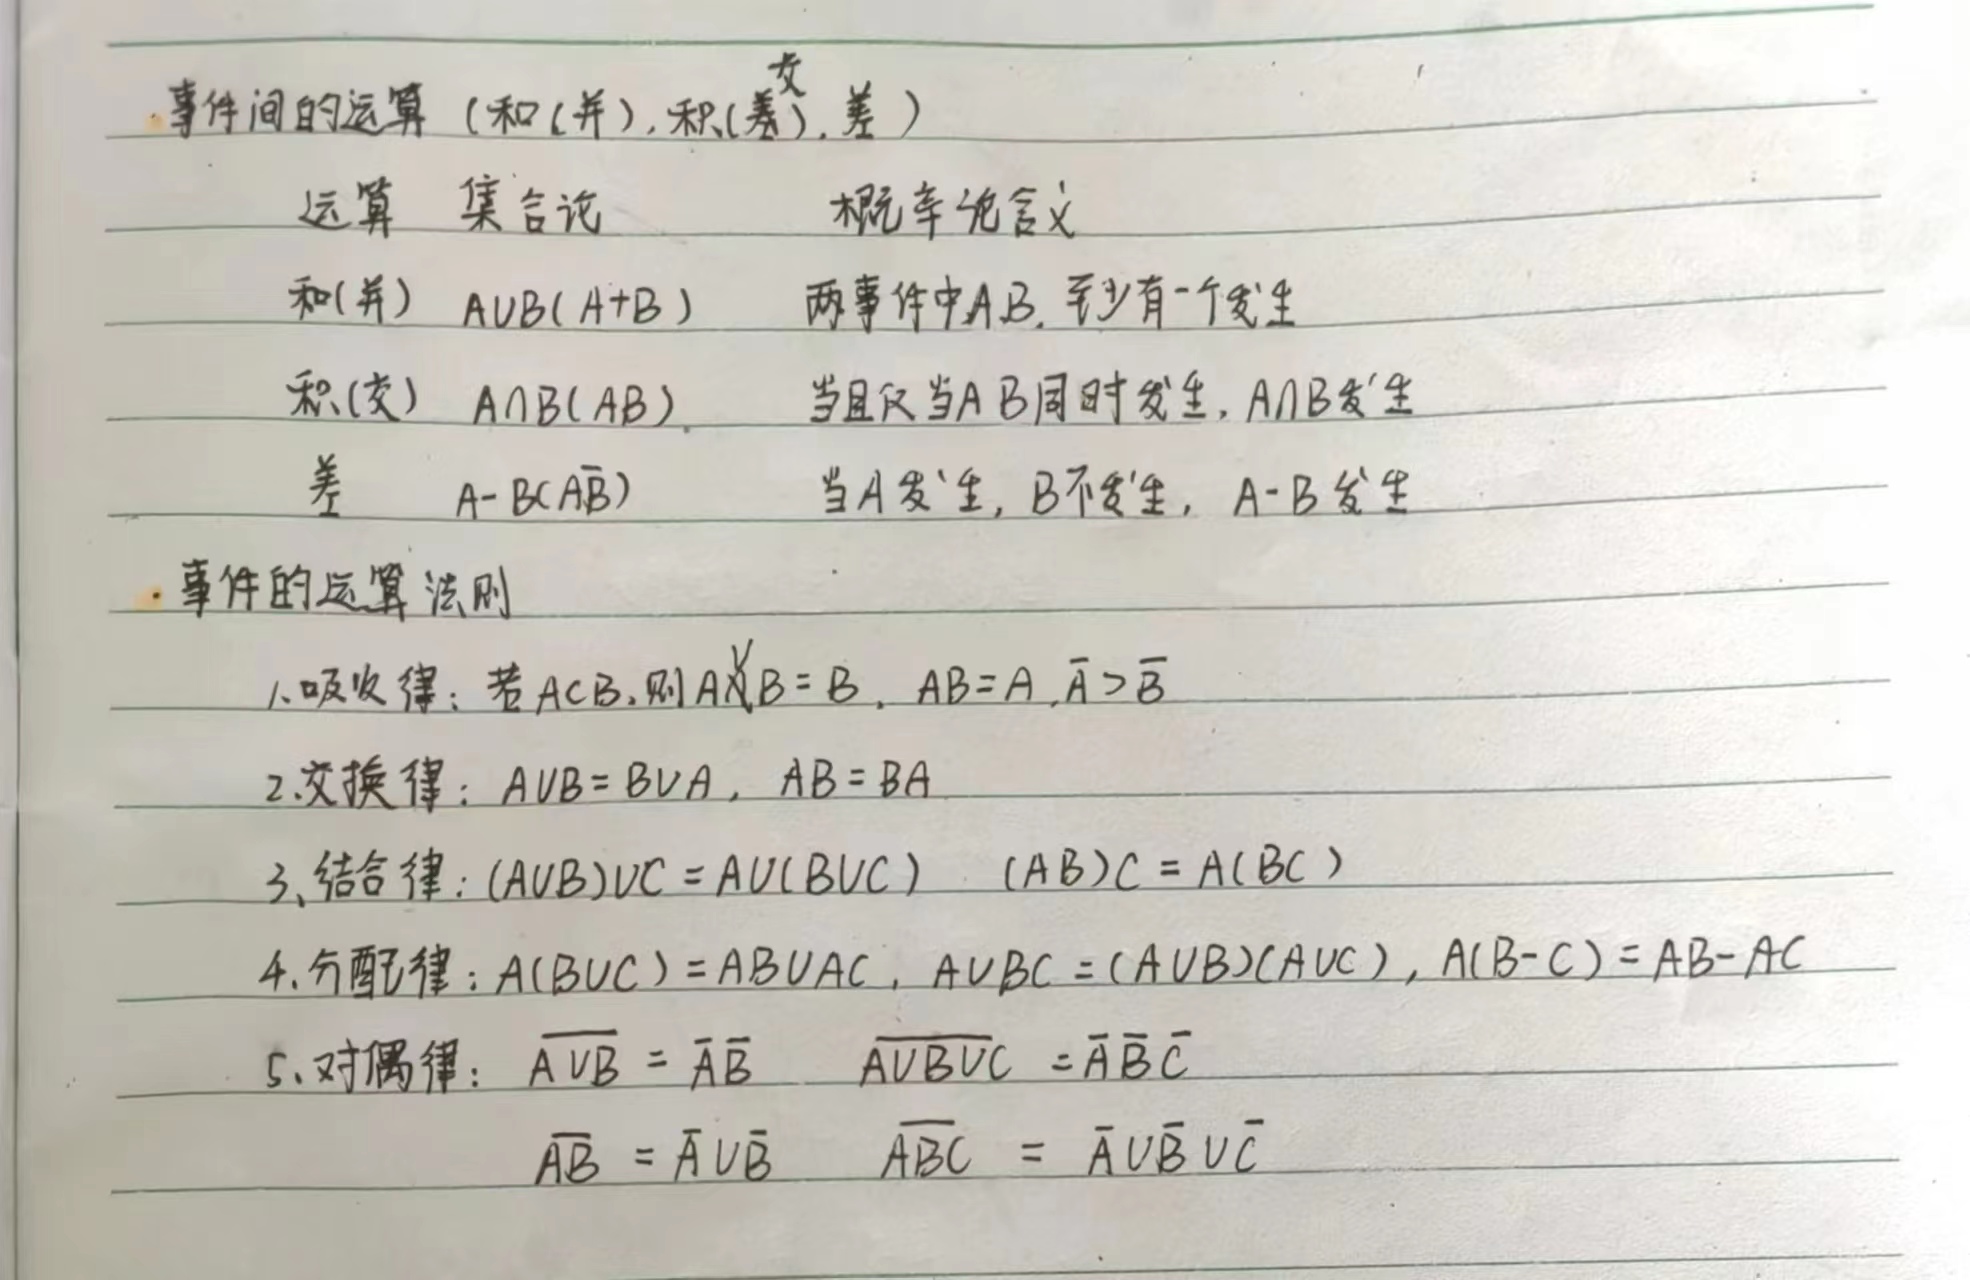 ·事件间的运算(和(并),积(交),差)
运算 集合论 概率论含义
和(并) A∪B(A+B) 两事件中A,B,至少有一个发生
积(交) A∩B(AB). 当且仅当A B同时发生,A∩B发生
差 A-B(AB̅) 当A发生,B不发生,A-B发生
·事件的运算法则
1.吸收律:若A⊂B,则A∪B=B,AB=A,A̅⊃B̅
2.交换律:A∪B=B∪A,AB=BA
3、结合律:(A∪B)∪C=A∪(B∪C) (AB)C=A(BC)
4.分配律:A(B∪C)=AB∪AC,A∪BC=(A∪B)(A∪C),A(B-C)=AB-AC
5、对偶律:A̅∪̅B̅=A̅ B̅ A̅∪̅B̅∪̅C̅=A̅ B̅ C̅
A̅B̅=A̅∪B̅ A̅B̅C̅=A̅∪B̅∪C̅